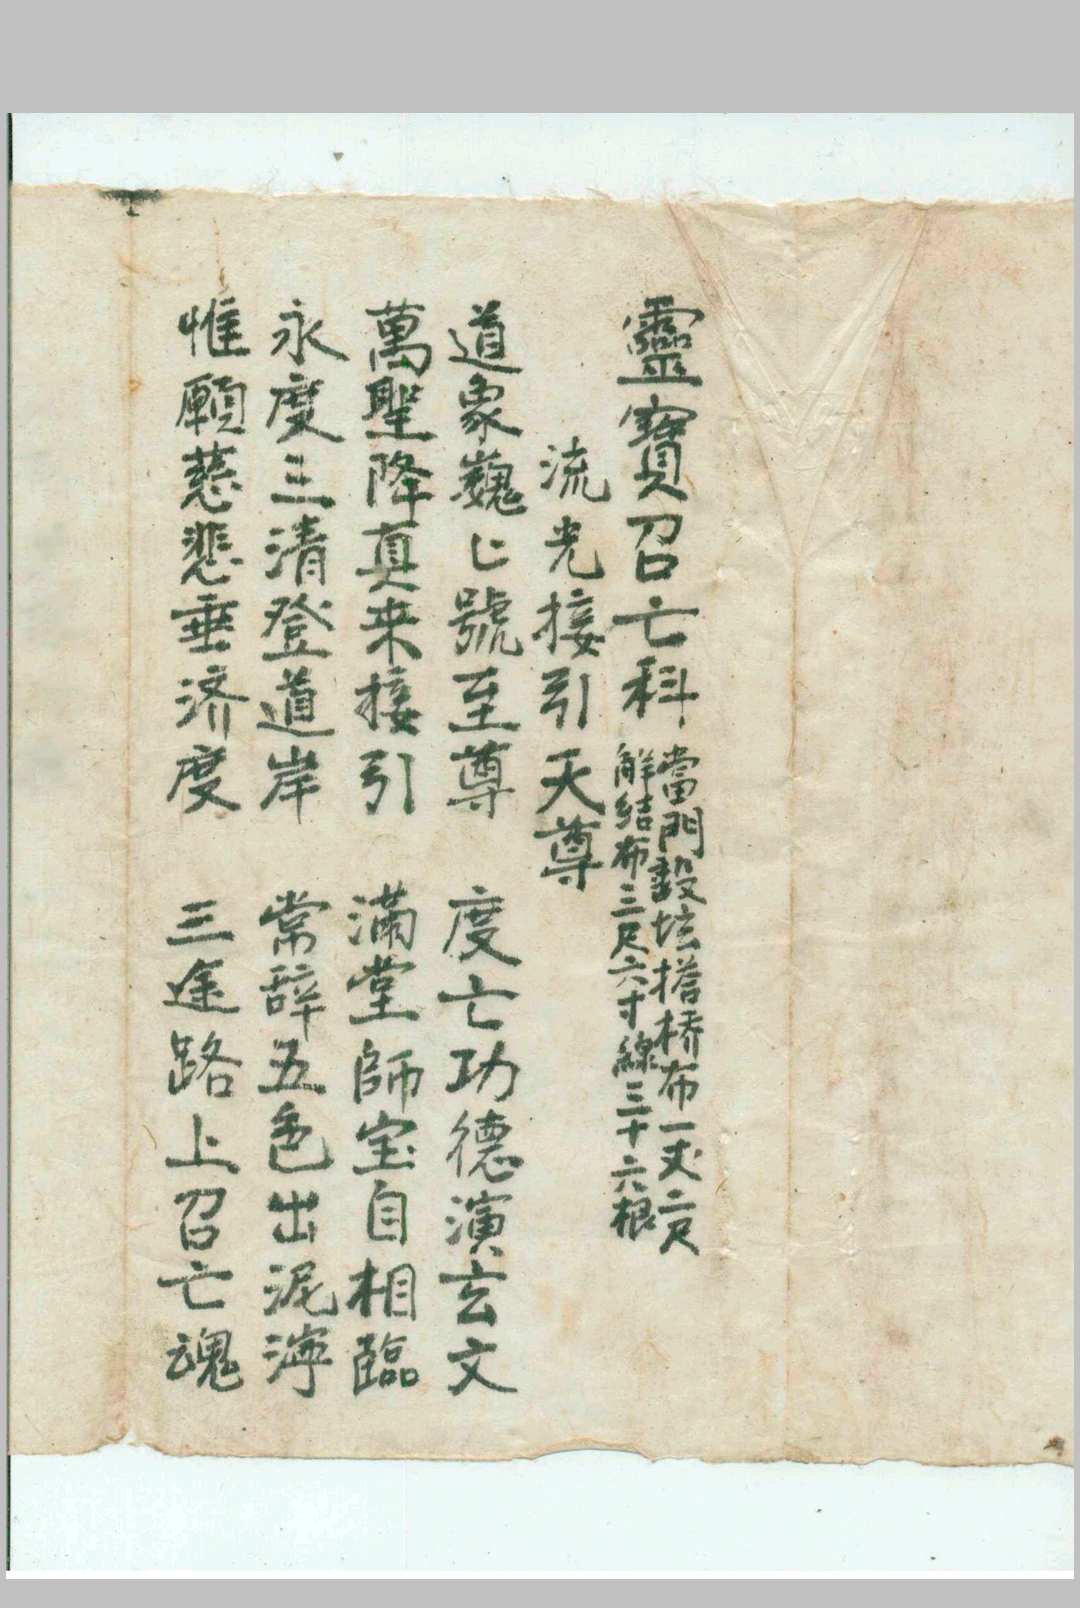 靈寶召亡科
當門設坛搭桥布一丈二尺
解结布三尺六寸線三十六根
流光接引天尊
道象巍〻號至尊　度亡功德演玄文
萬聖降真来接引　滿堂師宝自相臨
永度三清登道岸　常辞五色出泥濘
惟願慈悲垂济度　三途路上召亡魂